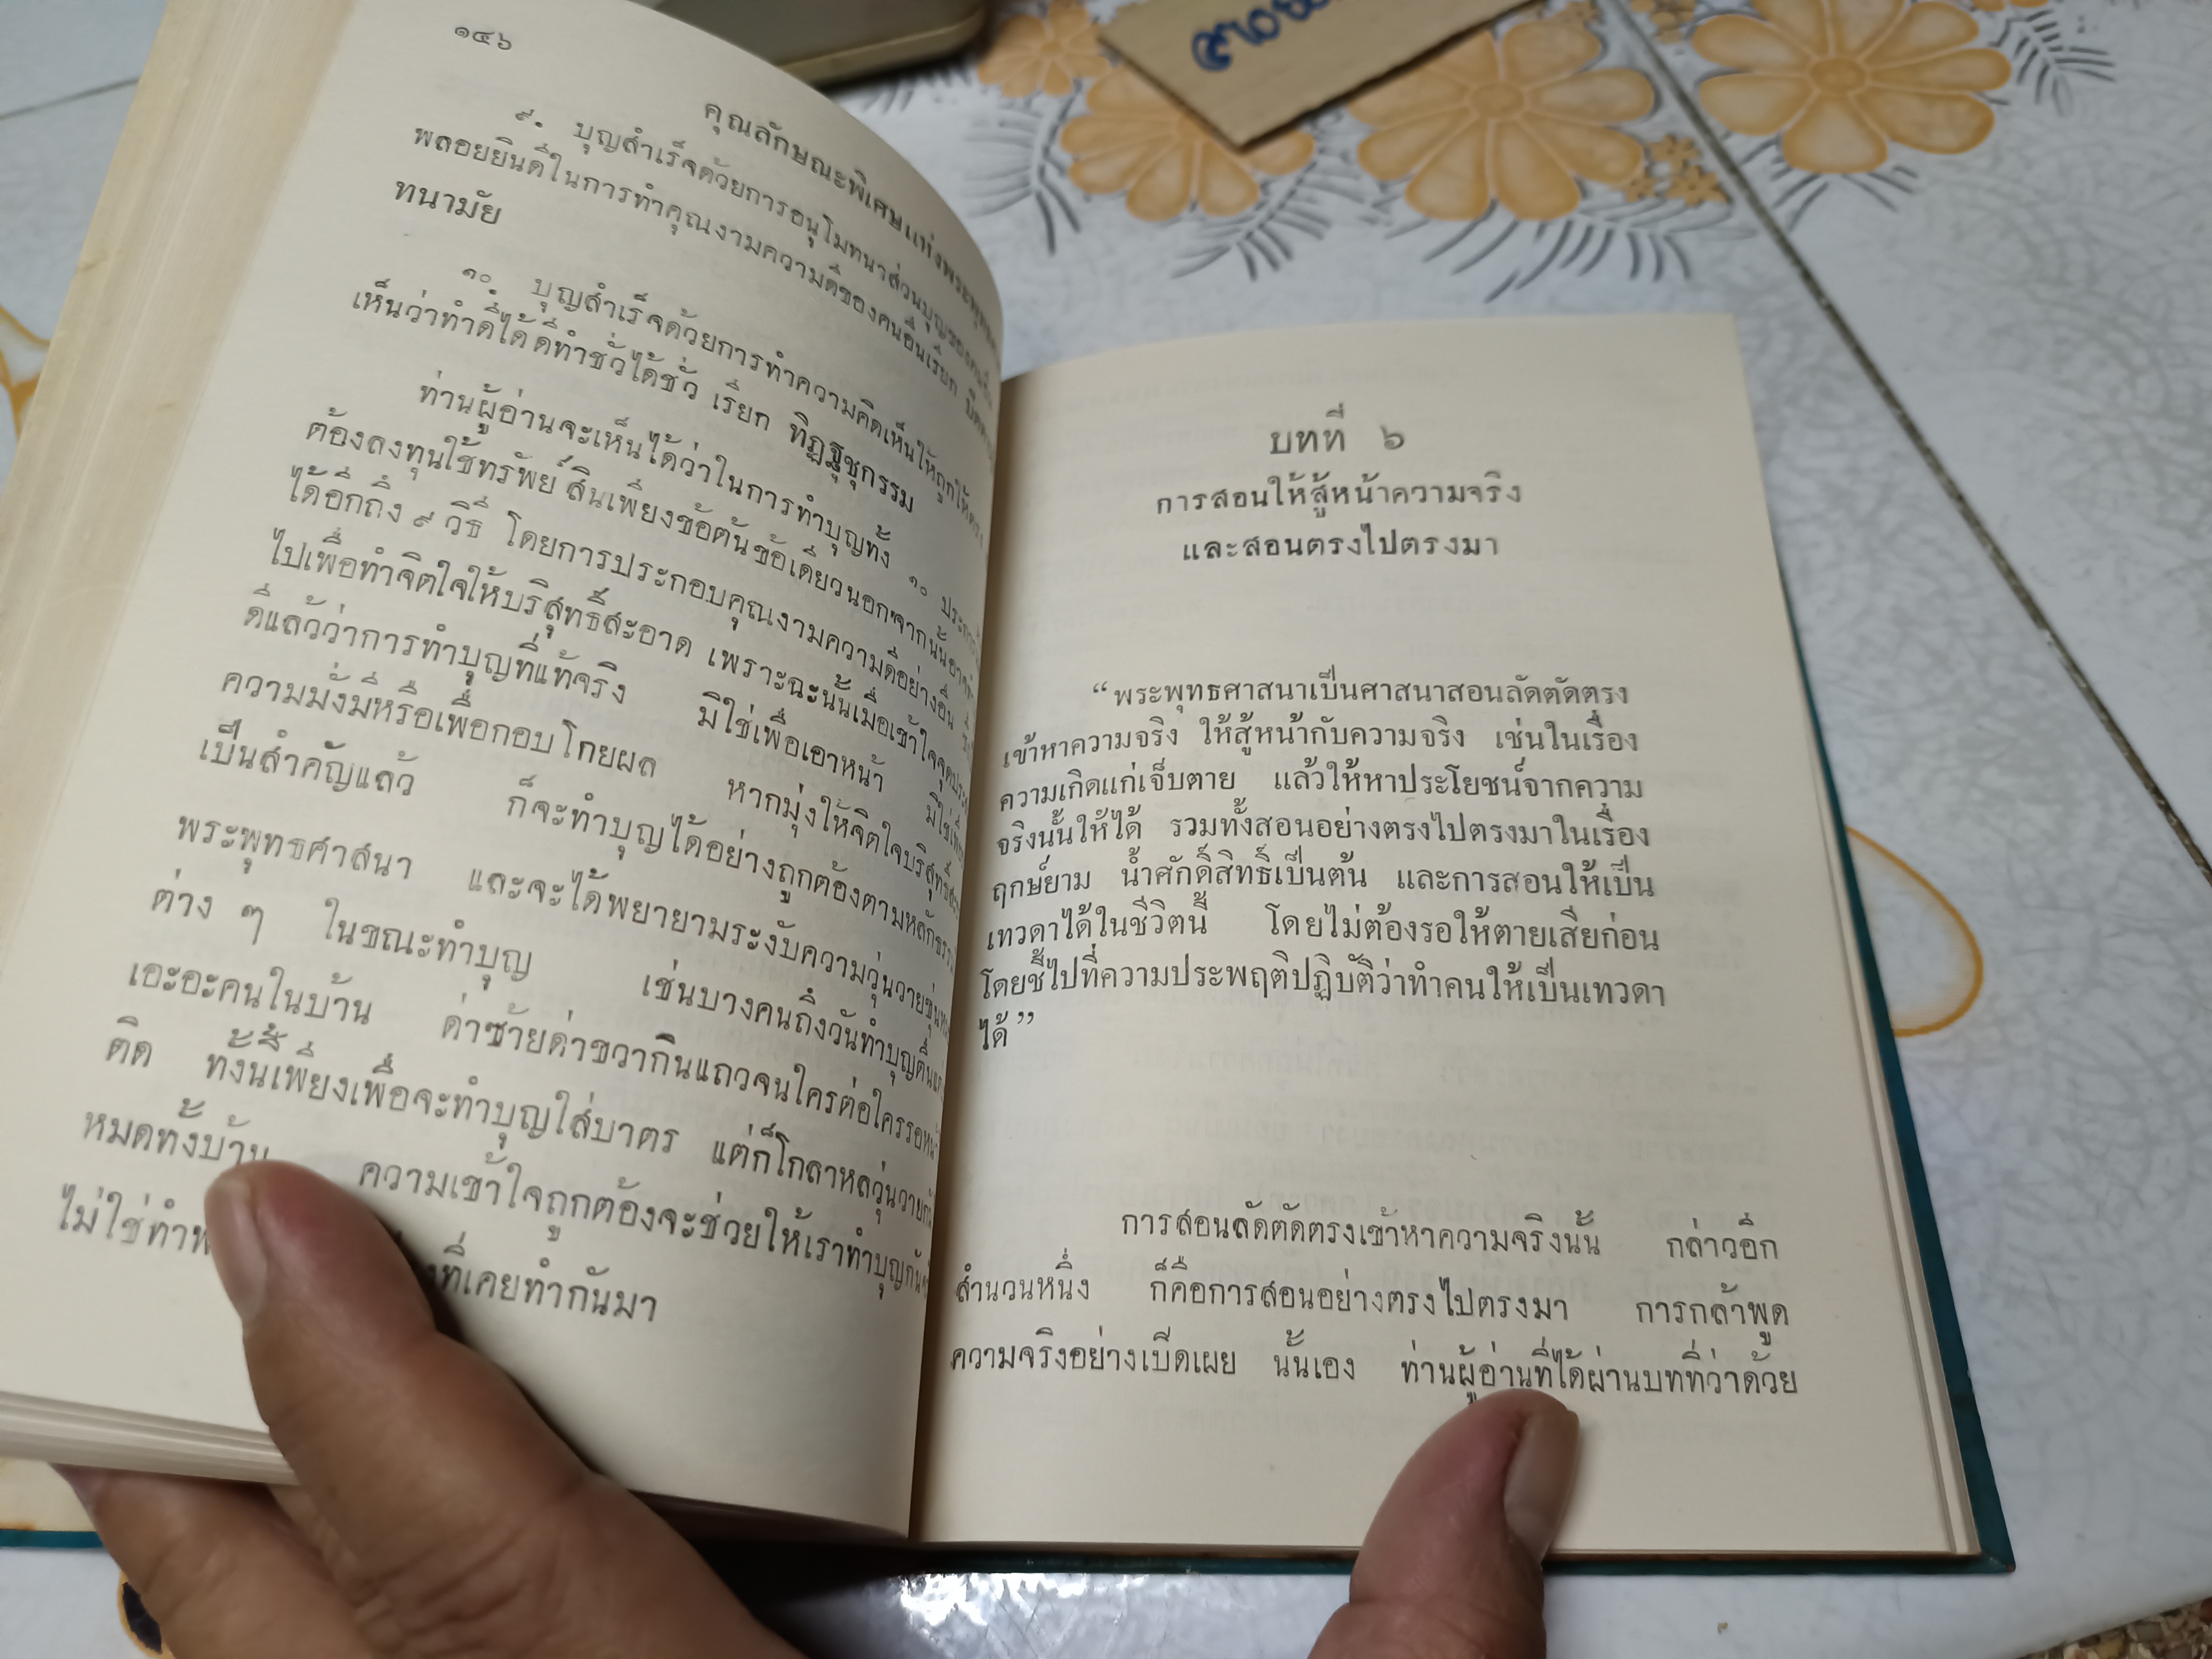 ๑๔๖
คุณลักษณะพิเศษแห่งพระพุทธ
๙. บุญสำเร็จด้วยการอนุโมทนาส่วนบุญของคนอื่น
พลอยยินดีในการทำคุณงามความดีของคนอื่นเรียก
ทนามัย
๑๐. บุญสำเร็จด้วยการทำความคิดเห็นให้ถูกให้ตรง
เห็นว่าทำดีได้ดีทำชั่วได้ชั่ว เรียก ทิฏฐุชุกรรม
ท่านผู้อ่านจะเห็นได้ว่าในการทำบุญทั้ง ๑๐
ต้องลงทุนใช้ทรัพย์สินเพียงข้อต้นข้อเดียวนอกจากนั้น
ได้อีกถึง ๙ วิธี โดยการประกอบคุณงามความดีอย่างอื่น
ไปเพื่อทำจิตใจให้บริสุทธิ์สะอาด เพราะฉะนั้นเมื่อเข้าใจ
ดีแล้วว่าการทำบุญที่แท้จริง มิใช่เพื่อเอาหน้า
ความมั่งมีหรือเพื่อกอบโกยผล หากมุ่งให้จิตใจบริสุทธิ์
เป็นสำคัญแล้ว ก็จะทำบุญได้อย่างถูกต้องตามหลัก
พระพุทธศาสนา และจะได้พยายามระงับความวุ่นวาย
ต่าง ๆ ในขณะทำบุญ เช่นบางคนถึงวันทำบุญ
เอะอะคนในบ้าน ด่าซ้ายด่าขวากินแถวจนใครต่อใคร
ติด ทั้งนี้เพียงเพื่อจะทำบุญใส่บาตร แต่ก็โกลาหลวุ่นวาย
หมดทั้งบ้าน ความเข้าใจถูกต้องจะช่วยให้เราทำบุญ
ไม่ใช่ทำ ที่เคยทำกันมา
บทที่ ๖
การสอนให้สู้หน้าความจริง
และสอนตรงไปตรงมา
“พระพุทธศาสนาเป็นศาสนาสอนลัดตัดตรง
เข้าหาความจริง ให้สู้หน้ากับความจริง เช่นในเรื่อง
ความเกิดแก่เจ็บตาย แล้วให้หาประโยชน์จากความ
จริงนั้นให้ได้ รวมทั้งสอนอย่างตรงไปตรงมาในเรื่อง
ฤกษ์ยาม น้ำศักดิ์สิทธิ์เป็นต้น และการสอนให้เป็น
เทวดาได้ในชีวิตนี้ โดยไม่ต้องรอให้ตายเสียก่อน
โดยชี้ไปที่ความประพฤติปฏิบัติว่าทำคนให้เป็นเทวดา
ได้”
การสอนลัดตัดตรงเข้าหาความจริงนั้น กล่าวอีก
สำนวนหนึ่ง ก็คือการสอนอย่างตรงไปตรงมา การกล้าพูด
ความจริงอย่างเปิดเผย นั้นเอง ท่านผู้อ่านที่ได้ผ่านบทที่ว่าด้วย